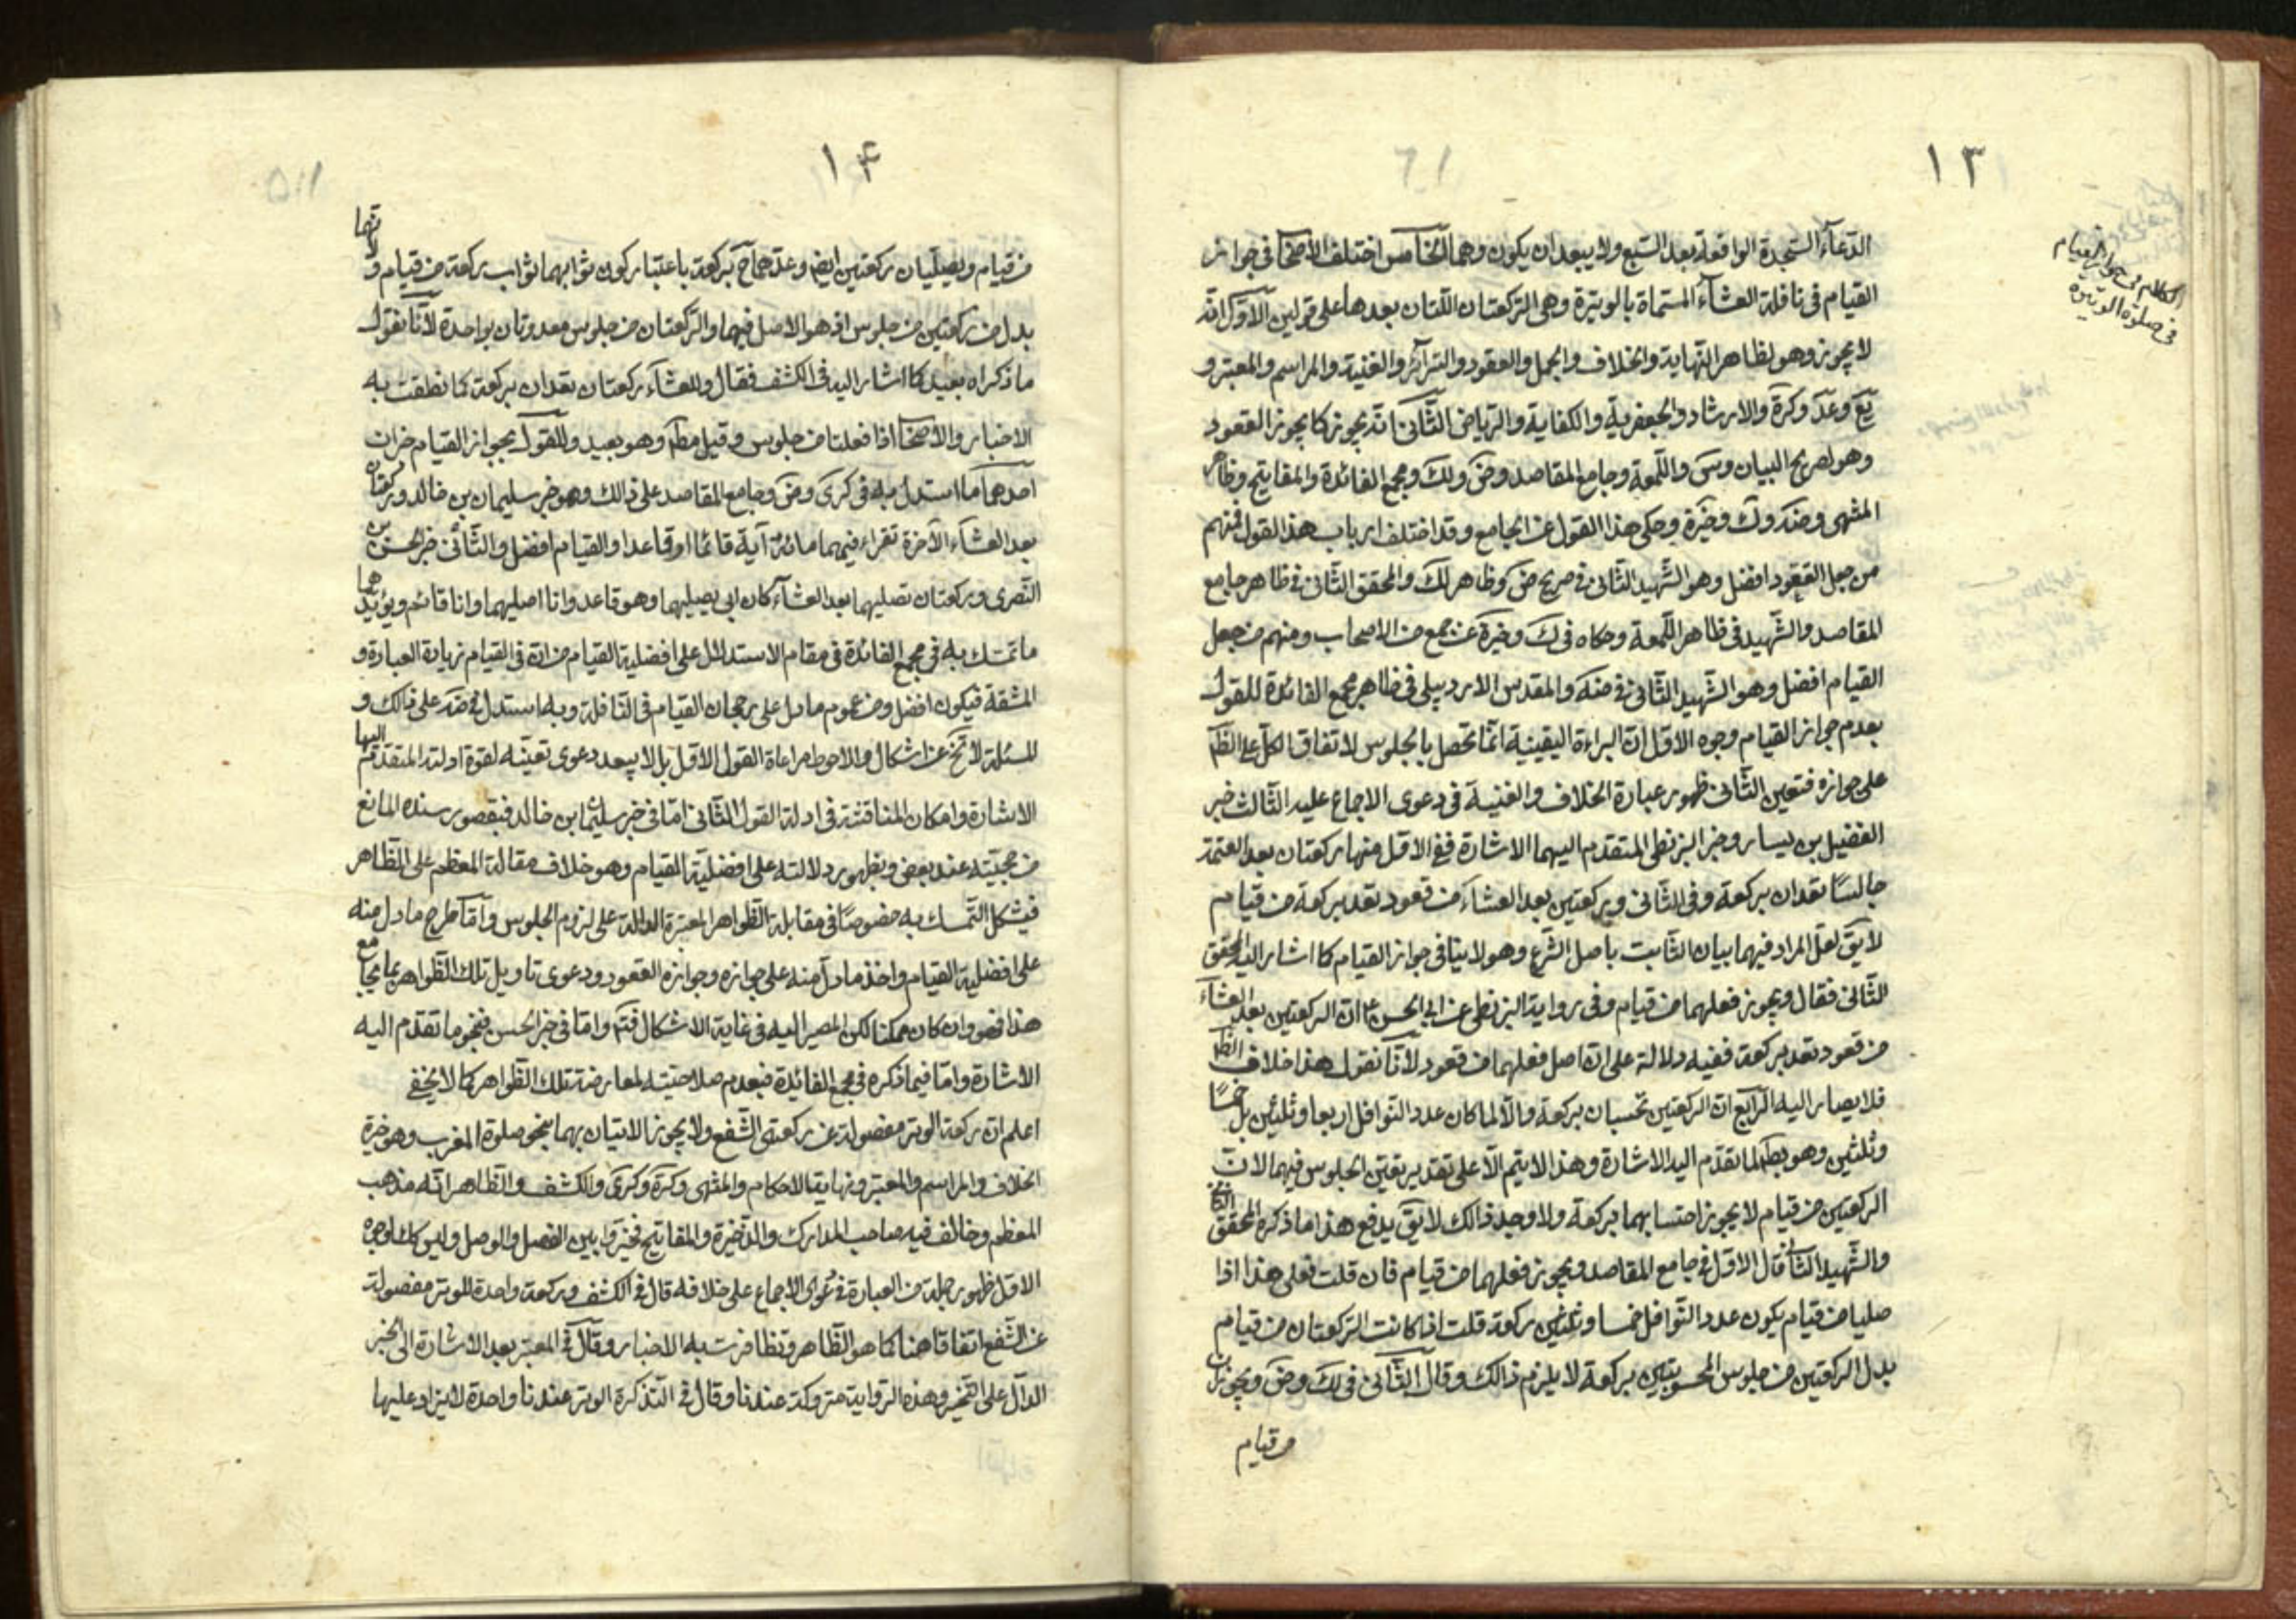 ١٣
الكلام فى جواز القيام
فى صلوة الوتيرة
الدعاء السجدة الواقعة بعد السبع ولا يبعد ان يكون وهما الخامس اختلف الأصحا فى جواز
القيام فى نافلة العشاء المسماة بالوتيرة وهى الركعتان اللتان بعدها على قولين الاول انه
لا يجوز وهو لظاهر النهاية والخلاف والجمل والعقود والسرائر والغنية والمراسم والمعتبر و
يع وعد وكرة والارشاد والجعفرية والكفاية والرياض الثانى انه يجوز كما يجوز القعود
وهو لصريح البيان وس واللمعة وجامع المقاصد وض ولك ومجمع الفائدة والمفاتيح وظاهر
المنتهى وضه وك وخيرة وحكى هذا القول عن الجامع وقد اختلف ارباب هذا القول فمنهم
من جعل القعود افضل وهو الشهيد الثانى فى صريح ض وظاهر لك والمحقق الثانى فى ظاهر جامع
المقاصد والشهيد فى ظاهر اللمعة وحكاه فى ك وخيرة عن جمع من الاصحاب ومنهم من جعل
القيام افضل وهو الشهيد الثانى فى ضه والمقدس الاردبيلى فى ظاهر مجمع الفائدة للقول
بعدم جواز القيام وجوه الاول ان البراءة اليقينية انما تحصل بالجلوس لاتفاق الكل على الظ
على جوازه فتعين الثانى ظهور عبارة الخلاف والغنية فى دعوى الاجماع عليه الثالث خبر
الفضيل بن يسار وخبر البزنطى المتقدم اليهما الاشارة ففى الاول منها ركعتان بعد العتمة
جالسًا تعدان بركعة وفى الثانى وركعتين بعد العشاء من قعود تعد بركعة من قيام
لا يق لعل المراد فيهما بيان الثابت باصل الشرع وهو لا ينافى جواز القيام كما اشار اليه المحقق
الثانى فقال ويجوز فعلهما من قيام وفى رواية البزنطى عن ابى الحسن ع ان الركعتين بعد العشاء
من قعود تعد بركعة ففيه دلالة على ان اصل فعلهما من قعود لأنا نقول هذا خلاف الظ
فلا يصار اليه الرابع ان الركعتين تحسبان بركعة والا لما كان عدد النوافل اربعا وثلثين بل خمسًا
وثلثين وهو بط لما تقدم اليه الاشارة وهذا لا يتم الا على تقدير تعين الجلوس فيهما لان
الركعتين من قيام لا يجوز احتسابهما بركعة ولا وجه لذلك لا يق يدفع هذا ما ذكره المحقق الثانى
والشهيد الثانى قال الاول فى جامع المقاصد ويجوز فعلهما من قيام فان قلت فعلى هذا اذا
صليا من قيام يكون عدد النوافل خمسا وثلثين ركعة قلت اذا كانت الركعتان من قيام
بدل الركعتين من جلوس المحسوبتين بركعة لا يلزم ذالك وقال الثانى فى لك وض ويجوزان
من قيام
١۴
من قيام ويصليان ركعتين ايضا وعدهما ح بركعة باعتبار كون ثوابهما ثواب ركعة من قيام و
بدل من ركعتين من جلوس اذ هو الاصل فيها والركعتان من جلوس معدوتان بواحدة لأنا نقول
ما ذكراه بعيد كما اشار اليه فى الكشف فقال وللعشاء ركعتان تعدان بركعة كما نطقت به
الاخبار والأصحا اذا فعلتا من جلوس وقيل مط وهو بعيد وللقول بجواز القيام خبران
احدهما ما استدل به فى كرى وض وجامع المقاصد على ذالك وهو خبر سليمان بن خالد وركعتان
بعد العشاء الآخرة تقراء فيهما مائة آية قائما او قاعدا والقيام افضل والثانى خبر الحسن بن
النصرى وركعتان تصليهما بعد العشاء كان ابى يصليهما وهو قاعد وانا اصليهما وانا قائم ويؤيدهما
ما تمسك به فى مجمع الفائدة فى مقام الاستدلال على افضلية القيام من ان فى القيام زيادة العبارة و
المشقة فيكون افضل ومن عموم ما دل على رجحان القيام فى النافلة وبه استدل فى ضه على ذالك و
المسئلة لا تخ عن اشكال والاحوط مراعاة القول الاول بل لا يبعد دعوى تعينه لقوة ادلته المتقدم اليها
الاشارة وامكان المناقشة فى ادلة القول الثانى اما فى خبر سليمان ابن خالد فبقصور سنده المانع
من حجيته عند بعض وبظهور دلالته على افضلية القيام وهو خلاف مقالة المعظم على الظاهر
فيشكل التمسك به خصوصًا فى مقابلة الظواهر المعتبرة الدالة على لزوم الجلوس وأما طرح ما دل منه
على افضلية القيام واخذ ما دل منه على جوازه وجوازه القعود ودعوى تاويل تلك الظواهر بما يجامع
هذا فهو وان كان ممكنا لكن المصير اليه فى غاية الاشكال فتم واما فى خبر الحسن فبنحو ما تقدم اليه
الاشارة واما فيما ذكره فى مجمع الفائدة فبعدم صلاحيته لمعارضة تلك الظواهر كما لا يخفى
اعلم ان ركعة الوتر مفصولة عن ركعتى الشفع ولا يجوز الاتيان بهما بنحو صلوة المغرب وهو خيرة
الخلاف والمراسم والمعتبر ونهاية الاحكام والمنتهى وكرة وكرى والكشف والظاهر انه مذهب
المعظم وخالف فيه صاحب المدارك والذخيرة والمفاتيح فخيروا بين الفصل والوصل وليس كك لوجوه
الاول ظهور جملة من العبارة فى دعوى الاجماع على خلافه قال فى الكشف وركعة واحدة للوتر مفصولة
عن الشفع اتفاقا هنا كما هو الظاهر وتظافرت به الاخبار وقال فى المعتبر بعد الاشارة الى الخبر
الدال على التخير وهذه الرواية متروكة عندنا وقال فى التذكرة الوتر عندنا واحدة لا يزاد عليها